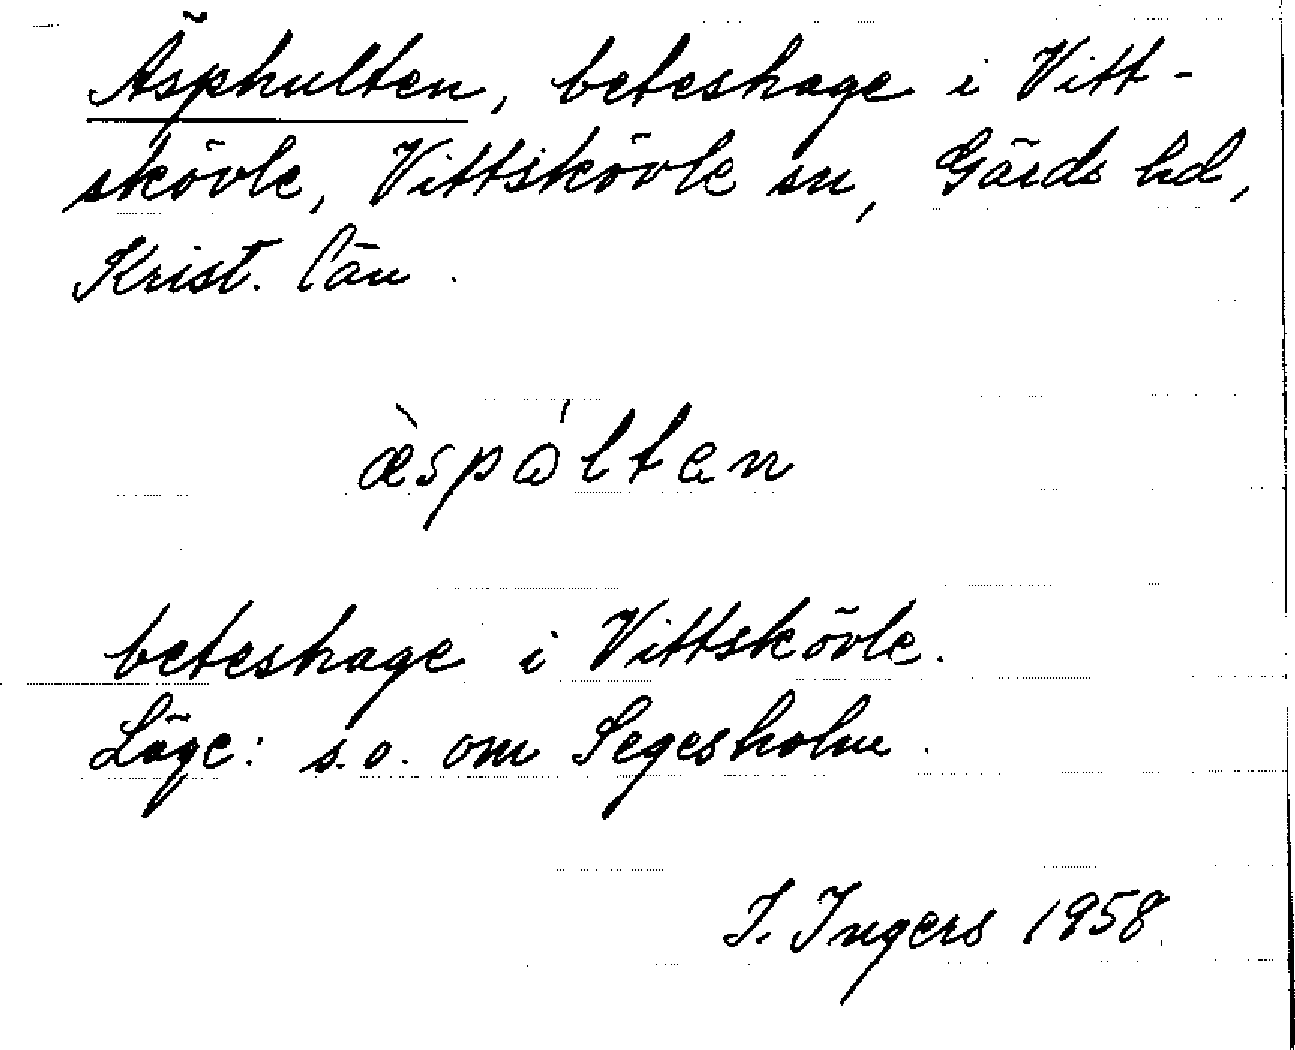 Äsphulten, beteshage i Vitt-
skövle, Vittskövle sn, Gärds hd,
Krist. län.
æ̀spɷ́ltɐn
beteshage i Vittskövle.
Läge: s.o. om Segesholm.
I. Ingers 1958